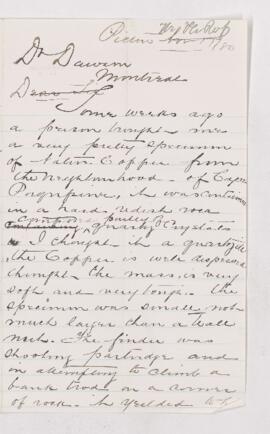 Pictou Nov 1 / 80
Dr Dawson
Montreal
Dear Sir
Some weeks ago
a person brought me
a very pretty specimen
of Native Copper from
the Neighbourhood of Cape
Porqupine, it was
in a hard redish rock
containing composed partly
of quartz Crystals
I thought it a quartzite
the Copper is well dispersed
through the mass, is very
soft and very tough. The
specimen was small, not
much larger than a Wall
nut. The finder was
shooting partridge and
in attempting to climb a
bank trod on a corner
of rock. It yealded